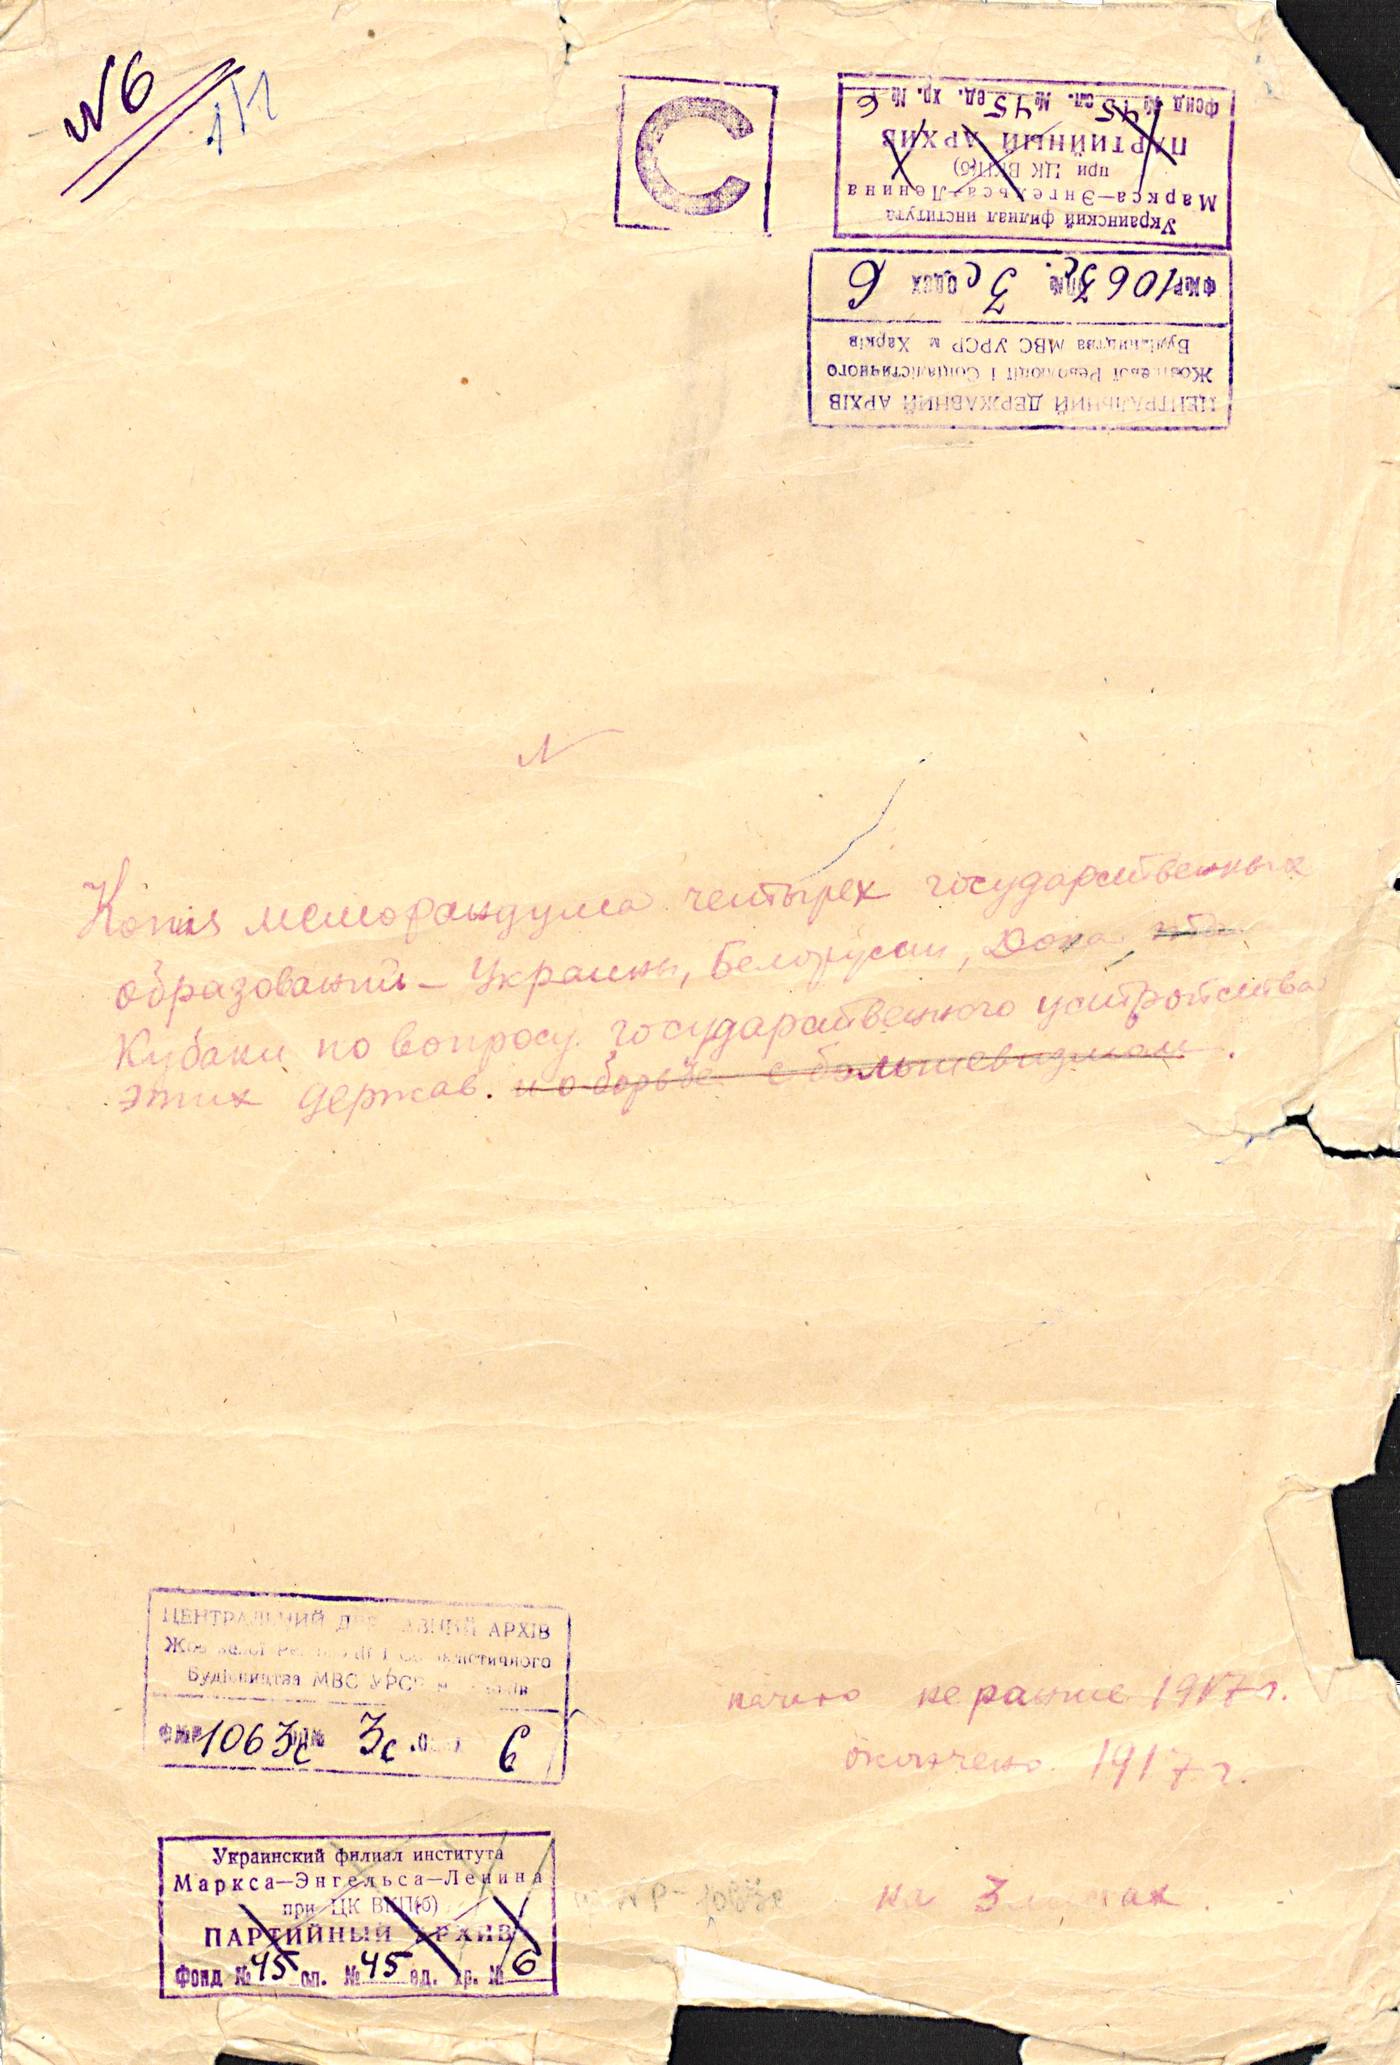 №6
1/1
С
Украинский филиал института
Маркса—Энгельса—Ленина
при ЦК ВКП(б)
ПАРТИЙНЫЙ АРХИВ
Фонд № 45 оп. № 45 ед. хр. № 6
ЦЕНТРАЛЬНИЙ ДЕРЖАВНИЙ АРХІВ
Жовтневої Революції і Соціалістичного
Будівництва МВС УРСР м Харків
Ф№Р 1063с ОП№ 3с ОД.ЗХ 6
N
Копия меморандума четырех государственных
образований – Украины, Белорусии, Дона
Кубани по вопросу государственного устройства
этих держав. и о борьбе с большевизмом.
ЦЕНТРАЛЬНИЙ ДЕРЖАВНИЙ АРХІВ
Жовтневої Революції і Соціалістичного
Будівництва МВС УРСР м Харків
Ф№Р 1063с ОП№ 3с ОД.ЗХ 6
начато не раньше 1917 г.
окончено 1917 г.
Украинский филиал института
Маркса—Энгельса—Ленина
при ЦК ВКП(б)
ПАРТИЙНЫЙ АРХИВ
Фонд № 45 оп. № 45 ед. хр. № 6
на 3 листах.